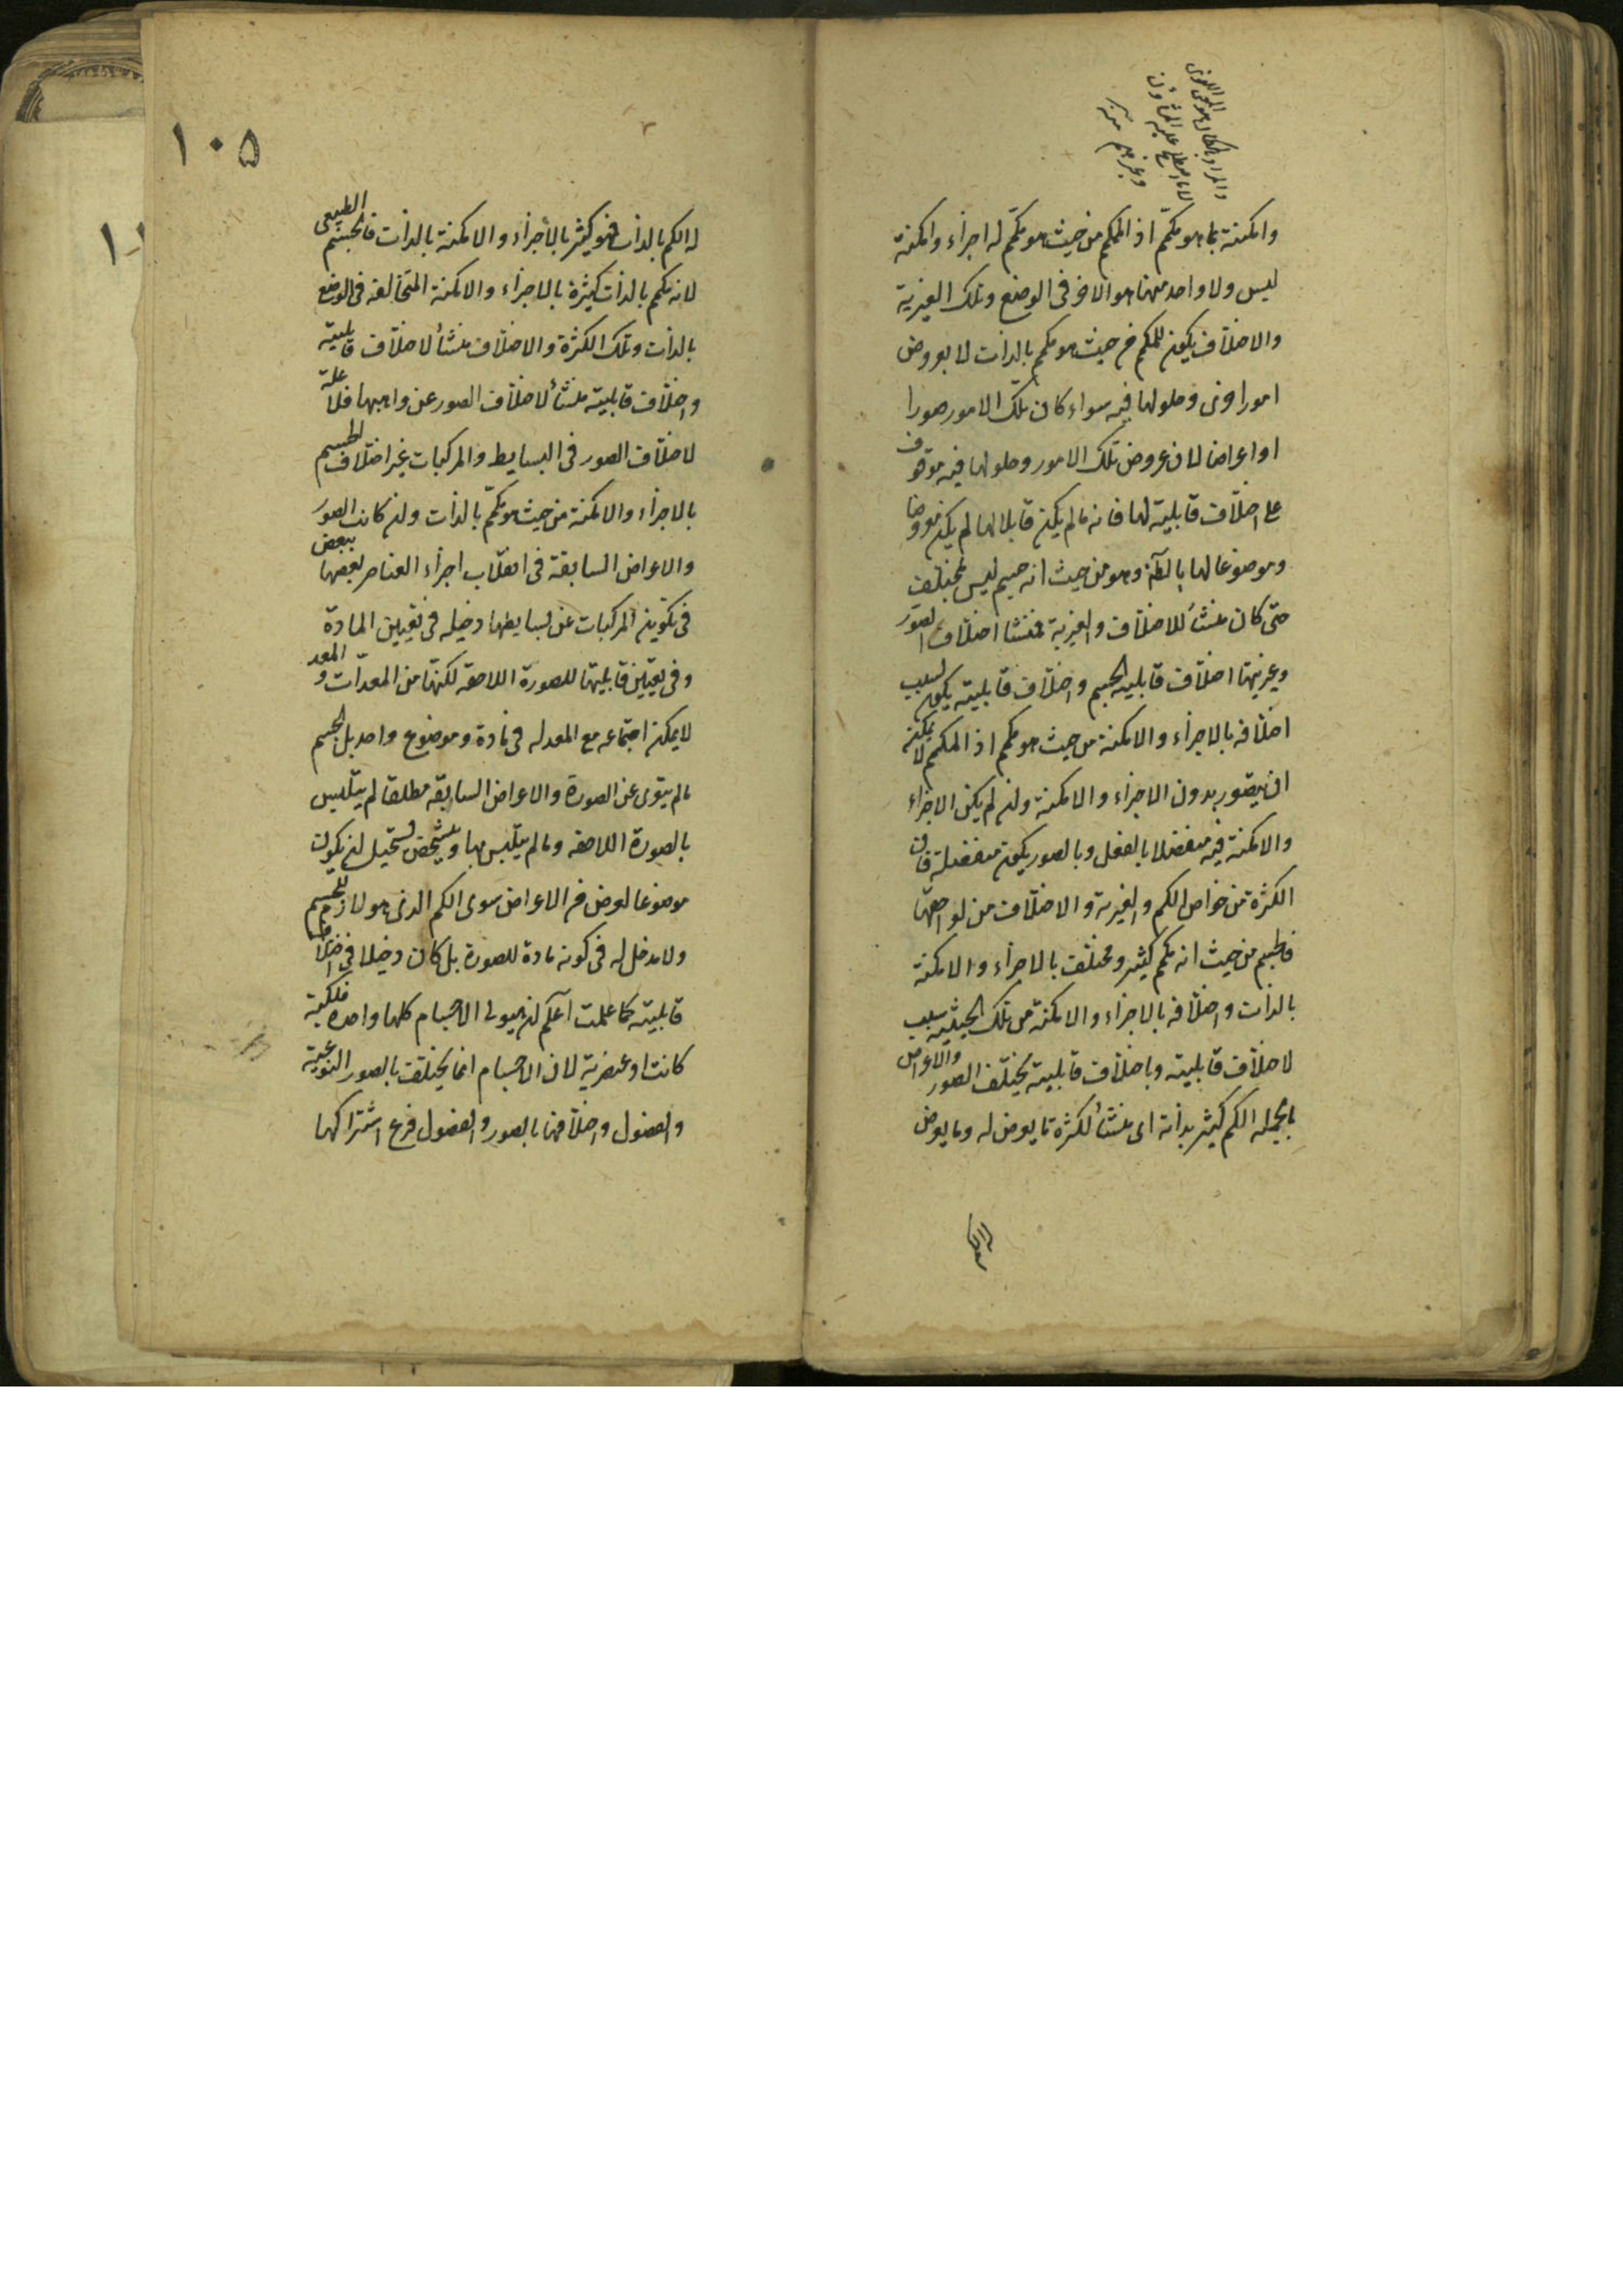 وامكنة بما هو متكمّم اذ المتكمم من حيث هو متكمّم له اجزاء وامكنة
ليس ولا واحد منها هو الاخر فى الوضع وتلك الغيرية
والاختلاف يكون للمتكمم من حيث هو متكمم بالذات لا بعروض
امور اخرى وحلولها فيه سواء كان تلك الامور صورا
او اعراضا لان عروض تلك الامور وحلولها فيه موقوف
على اختلاف قابليته لها فانه ما لم يكن قابلا لها لم يكن معروضا
وموضوعا لها بالجملة وهو من حيث انه جسم ليس بمختلف
حتى كان منشأ للاختلاف والغيرية فمنشا اختلاف الصور
وغيريتها اختلاف قابلية الجسم واختلاف قابليته يكون بسبب
اختلافه بالاجزاء والامكنة من حيث هو متكمم اذ المتكمم لا يمكنه
ان يتصور بدون الاجزاء والامكنة وان لم يكن الاجزاء
والامكنة فيه منفصلا بالفعل وبالصور يكون منفصلة فان
الكثرة من خواص الكم والغيرية والاختلاف من لواحقها
فالجسم من حيث انه متكمم كثير ومختلف بالاجزاء والامكنة
بالذات واختلافه بالاجزاء والامكنة من تلك الحيثية سبب
لاختلاف قابليته وباختلاف قابليته يختلف الصور والاعراض
بالجملة الكم كثير بذاته اى منشأ لكثرة ما يعرض له وما يعرض
له الكم
١٠٥
له الكم بالذات فهو كثير بالاجزاء والامكنة بالذات فالجسم الطبيعى
لانه متكمم بالذات كثيرة بالاجزاء والامكنة المتخالفة فى الوضع
بالذات وتلك الكثرة والاختلاف منشأ لاختلاف قابليته
واختلاف قابليته منشأ لاختلاف الصور عن واهبها فلا علة
لاختلاف الصور فى البسايط والمركبات غير اختلاف الجسم
بالاجزاء والامكنة من حيث هو متكمّم بالذات وان كانت الصور
والاعراض السابقة فى انقلاب اجزاء العناصر بعضها ببعض
فى تكوين المركبات عن بسايطها دخيله فى تعيين المادة
وفى تعيين قابليتها للصورة اللاحقه لكنّها من المعدّات و المعد
لا يمكن اجتماعه مع المعد له فى مادة وموضوع واحد بل الجسم
ما لم يتعرى عن الصورة والاعراض السابقه مطلقا لم يتلبس
بالصورة اللاحقه وما لم يتلبس بها ويتشخص يستحيل ان يكون
موضوعا لعرض من الاعراض سوى الكم الذى هو لازم للجسم
ولا مدخل له فى كونه مادة للصورة بل كان دخيلا فى اختلاف
قابليته كما علمت اعلم ان هيولى الاجسام كلها واحدة فلكية
كانت او عنصرية لان الاجسام انما يختلف بالصور النوعية
والفصول واختلافها بالصور والفصول فرع اشتراكها